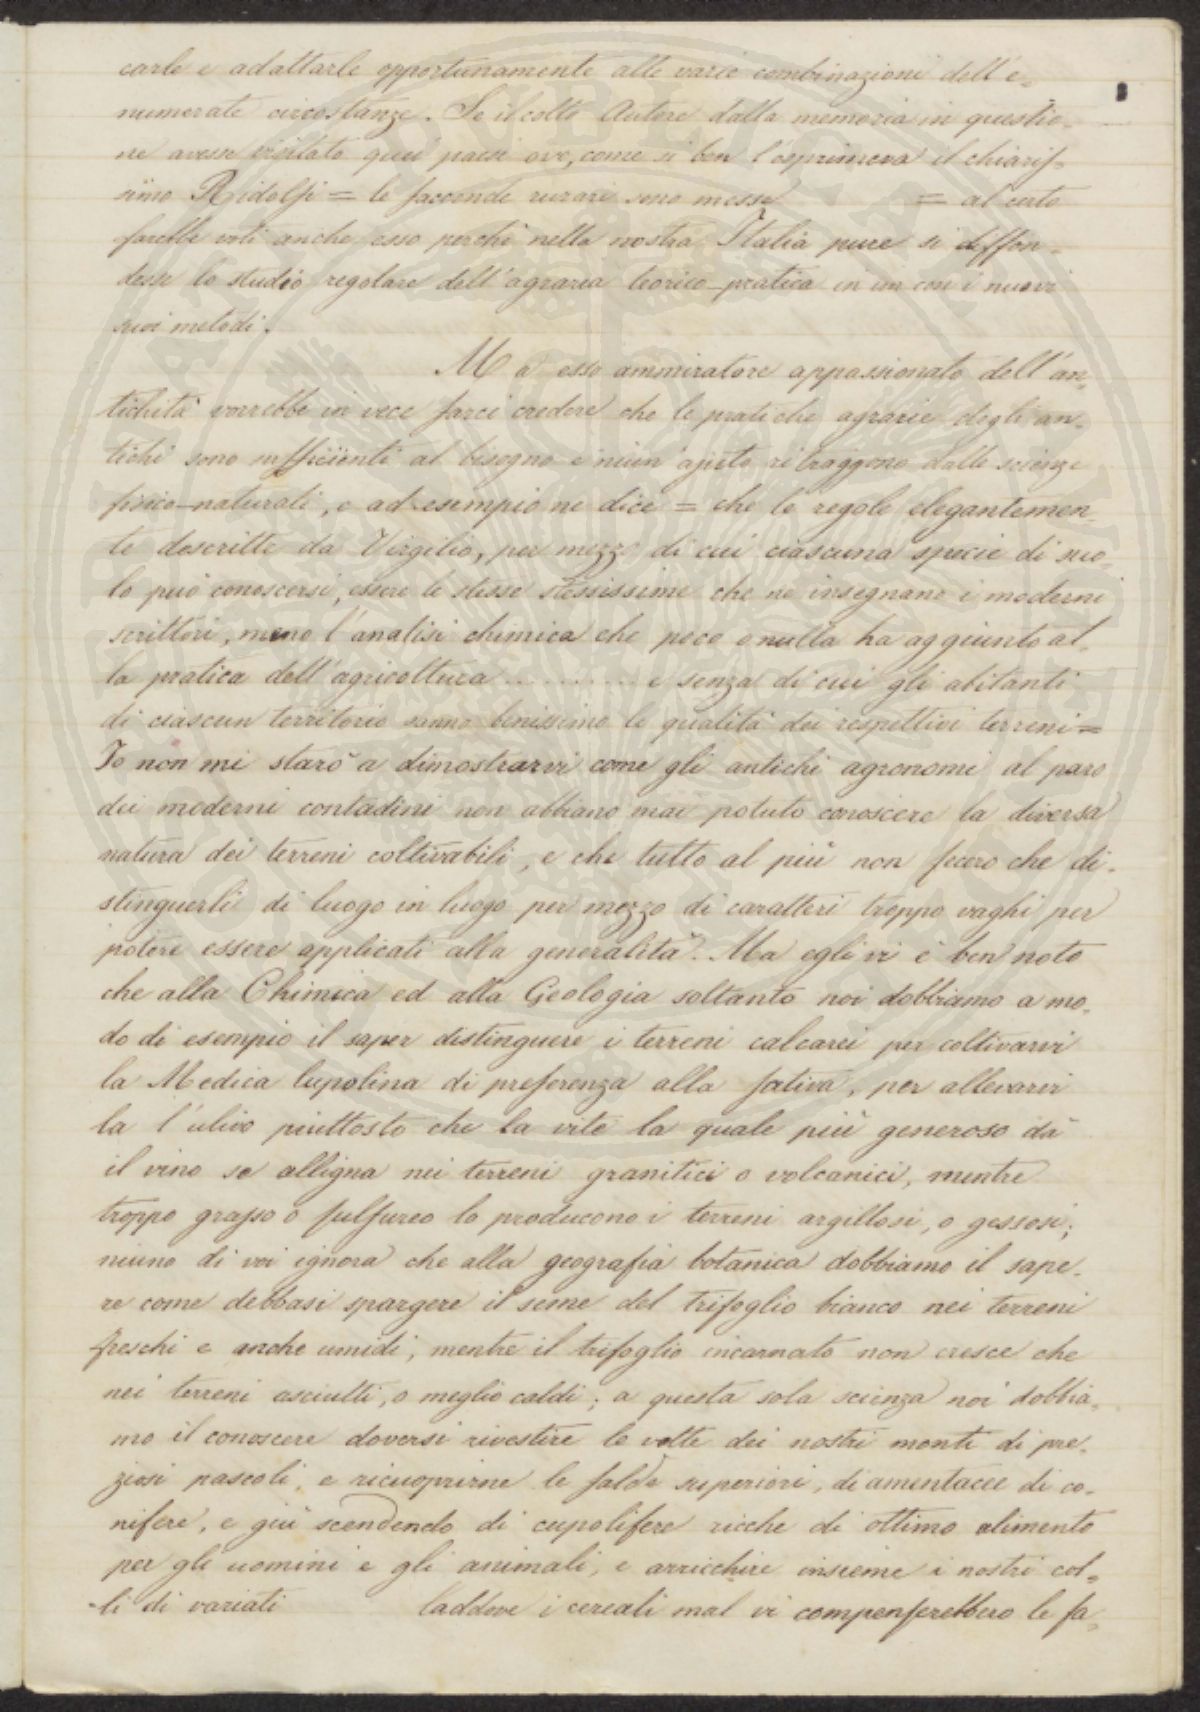 carle e adattarle opportunamente alle varie combinazioni dell'e-
numerate circostanze. Se il colto Autore della memoria in questio-
ne avesse visitato quei paesi ove, come si ben l'esprimeva il chiaris-
simo Ridolfi = le faccende rurari sono messe = al certo
farebbe voti anche esso perchè nella nostra Italia pure si diffon-
desse lo studio regolare dell'agraria teorico-pratica in un con i nuovi
suoi metodi.
Ma esso ammiratore appassionato dell'an-
tichità vorrebbe in vece farci credere che le pratiche agrarie degli an-
tichi sono sufficienti al bisogno e niun'ajuto ritraggono dalle scienze
fisico-naturali, e ad esempio ne dice = che le regole elegantemen-
te descritte da Virgilio, per mezzo di cui ciascuna specie di suo-
lo può conoscersi, essere le stesse stessissime che ne insegnano i moderni
scrittori, meno l'analisi chimica che poco o nulla ha aggiunto al-
la pratica dell'agricoltura . . . . . . . . . e senza di cui gli abitanti
di ciascun territorio sanno benissimo le qualità dei respettivi terreni =
Io non mi starò a dimostrarvi come gli antichi agronomi al paro
dei moderni contadini non abbiano mai potuto conoscere la diversa
natura dei terreni coltivabili, e che tutto al più non fecero che di-
stinguerli di luogo in luogo per mezzo di caratteri troppo vaghi per
potere essere applicati alla generalità. Ma egli vi è ben noto
che alla Chimica ed alla Geologia soltanto noi dobbiamo a mo-
do di esempio il saper distinguere i terreni calcarei per coltivarvi
la Medica lupolina di preferenza alla sativa, per allevarvi
la l'ulivo piuttosto che la vite la quale più generoso dà
il vino se alligna nei terreni granitici o volcanici, mentre
troppo grasso o sulfureo lo producono i terreni argillosi, o gessosi;
niuno di voi ignora che alla geografia botanica dobbiamo il sape-
re come debbasi spargere il seme del trifoglio bianco nei terreni
freschi e anche umidi, mentre il trifoglio incarnato non cresce che
nei terreni asciutti, o meglio caldi; a questa sola scienza noi dobbia-
mo il conoscere doversi rivestire le vette dei nostri monti di pre-
ziosi pascoli, e ricuoprirne le falde superiori, di amentacee di co-
nifere, e giù scendendo di cupolifere ricche di ottimo alimento
per gli uomini e gli animali, e arricchire insieme i nostri col-
li di variati laddove i cereali mal vi compenserebbero le fa-